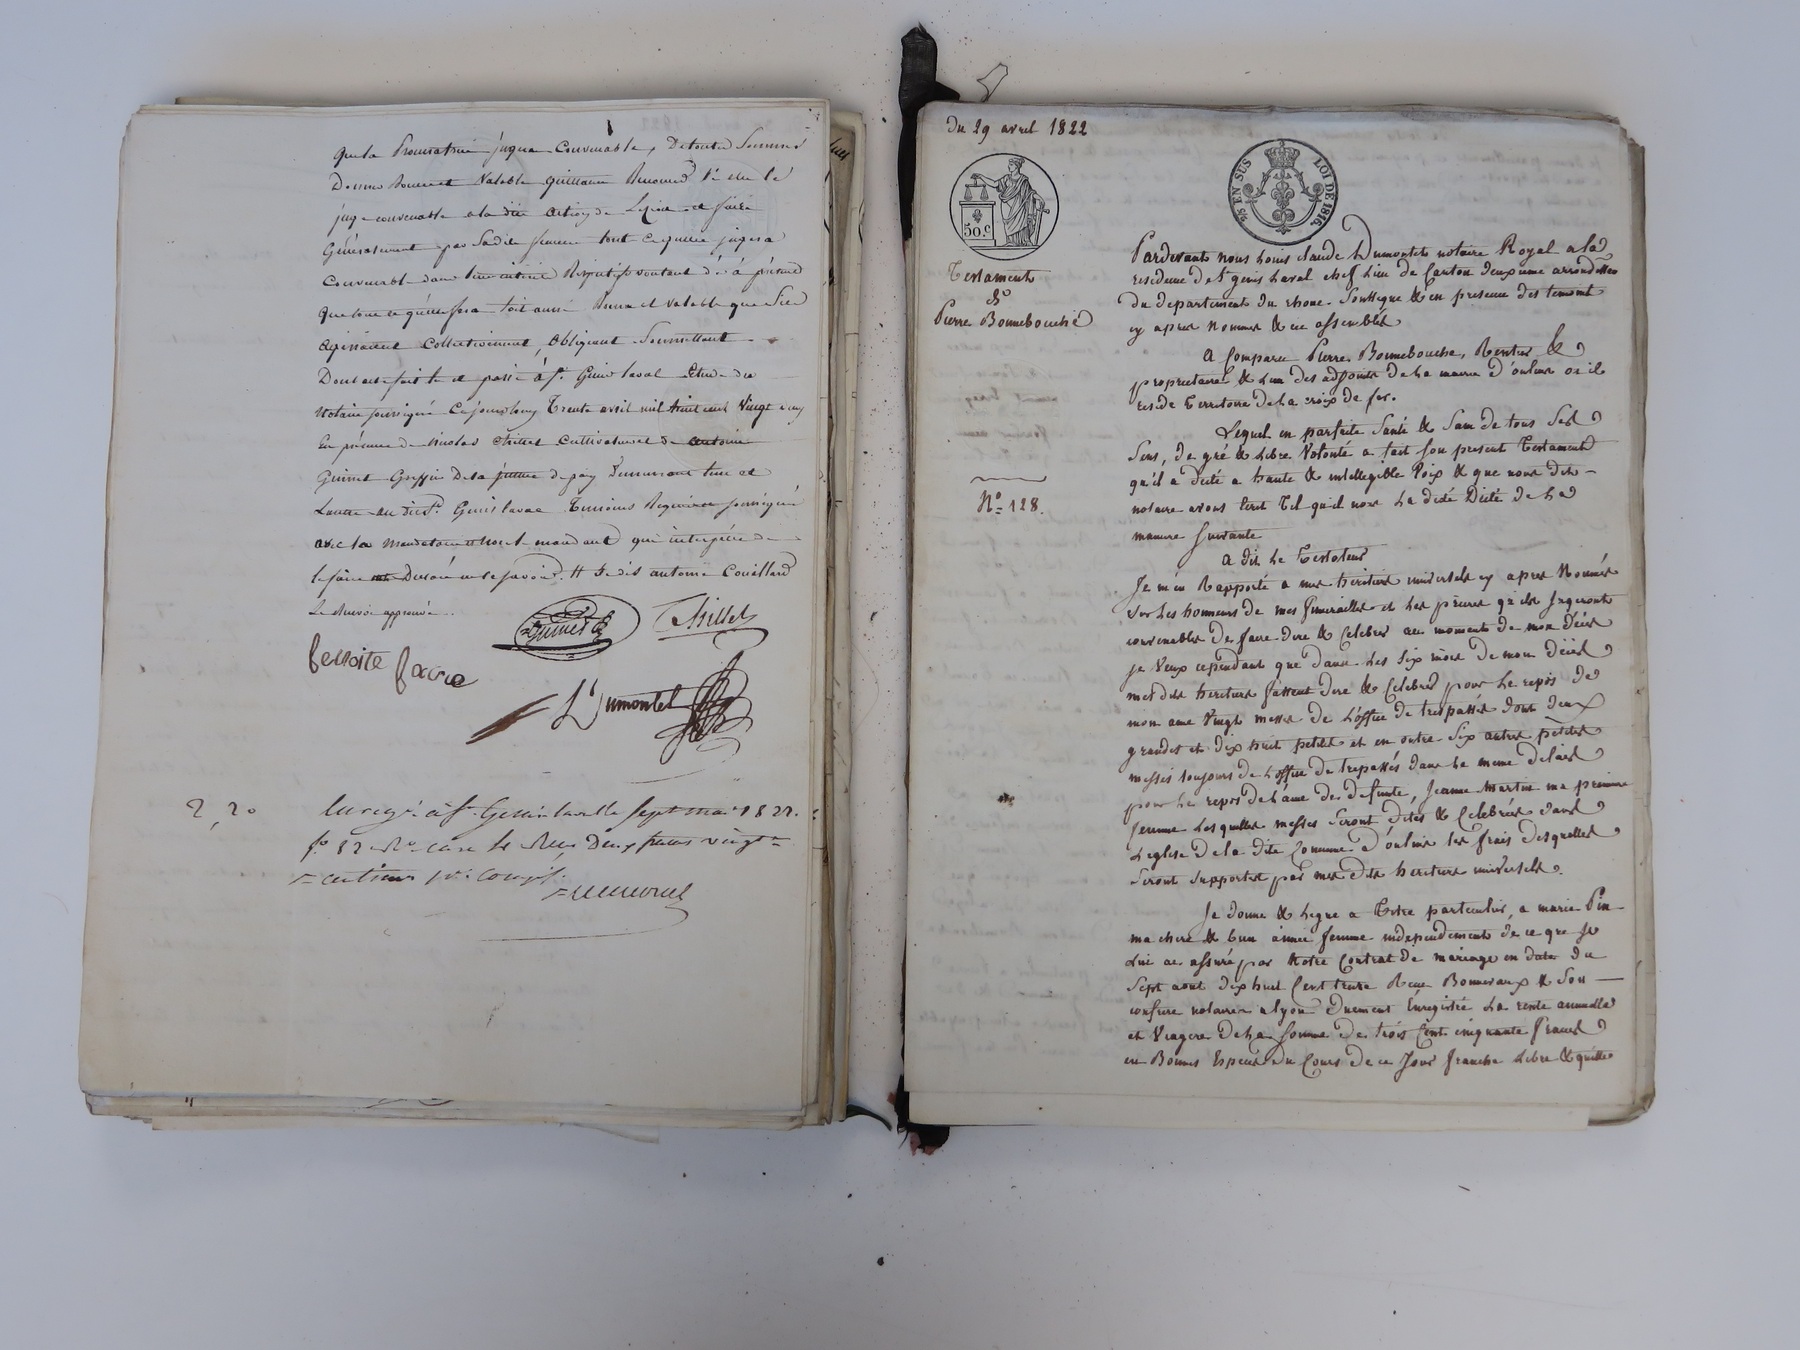 que la Procuratrice jugera Convenable, De toutes Sommes
Donner bonne et Valable quittance
juge convenable a la dite
Généralement par Sadite femme tout ce quelle jugera
Convenable dans
que tout ce quelle fera soit aussi bonne et valable que Sils
agissaient Collectivement, obligeant Soumettant
Dont acte fait lu et passé à St. Genis laval Etude du
Notaire soussigné Cejourdhuy Trente avril mil huit cent Vingt deux
En présence de Nicolas Chillet Cultivateur & antoine
Guinet Greffier De la justice de paix Demeurant tous
audit St. Genis laval Temoins Requis soussignés
avec la Mandataire et non le mandant qui interpellé de
le faire Declaré ne le savoir. # je dis antoine Couillard
Le Renvoi approuvé.
Guinet
Chillet
benoite favre
Dumontet
2, 20
Enregé à St. Genis laval le Sept mai 1822.
fo 82 case Reçu Deux francs vingt
centimes
du 29 avril 1822
25 EN SUS
LOI DE 1816.
50.c
Testament
de
Pierre Bonnebouche
No= 128.
Pardevant nous Louis claude Dumontet notaire Royal a la
residence de St genis Laval chef Lieu de Canton deuxieme arrondisst
du departement du rhone Soussigné & en presence des temoins
cy apres Nommés & en assemblés
A Comparu Pierre Bonnebouche, Rentier &
proprietaire & L'un des adjoints de La mairie d'oulins où il
reside Territoire de La croix de fer.
Lequel en parfaite Santé & Sain de tous Ses
Sens, de gré & Libre Volonté a fait Son present Testament
qu'il a dicté a haute & intellegible Voix & que nous dit
notaire avons Ecrit Tel qu'il nous La dicté Dicté de La
maniere Suivante
A dit Le Testateur
Je m'en Rapporte a mes heritiers universels cy apres Nommés
Sur Les honneurs de mes funerailles et Les prieres qu'ils Jugeront
convenables de faire dire & Celebrer au moment de mon décès
je Veux cependant que dans Les Six mois de mon décès
mesdits heritiers fassent dire & Celebrer pour Le repos de
mon ame Vingt messes de L'office de trespassés dont deux
grandes et dix huit petites et en outre Six autres petites
messes toujours de L'office de trepassés dans Le meme delais
pour Le repos de L'ame de defunte, Jeanne Martin ma premiere
femme Lesquelles messes Seront dites & Celebrées dans
L'eglise de la dite Commune d'oulins les frais desquelles
Seront Supportés par mes dits heritiers universels.
Je donne & Legue a Titre particulier, a marie Pin
ma chere & bien aimée femme independement de ce que Je
Lui ai assuré par Notre Contrat de mariage en date du
Sept aout dix huit Cent treize Reçu Bonnevaux & Son
confrere notaires a lyon Duement Enregistré La rente annuelle
et Viagere de La Somme de trois Cent cinquante francs
en Bonnes Especes du Cours de ce Jour franche Libre & quitte